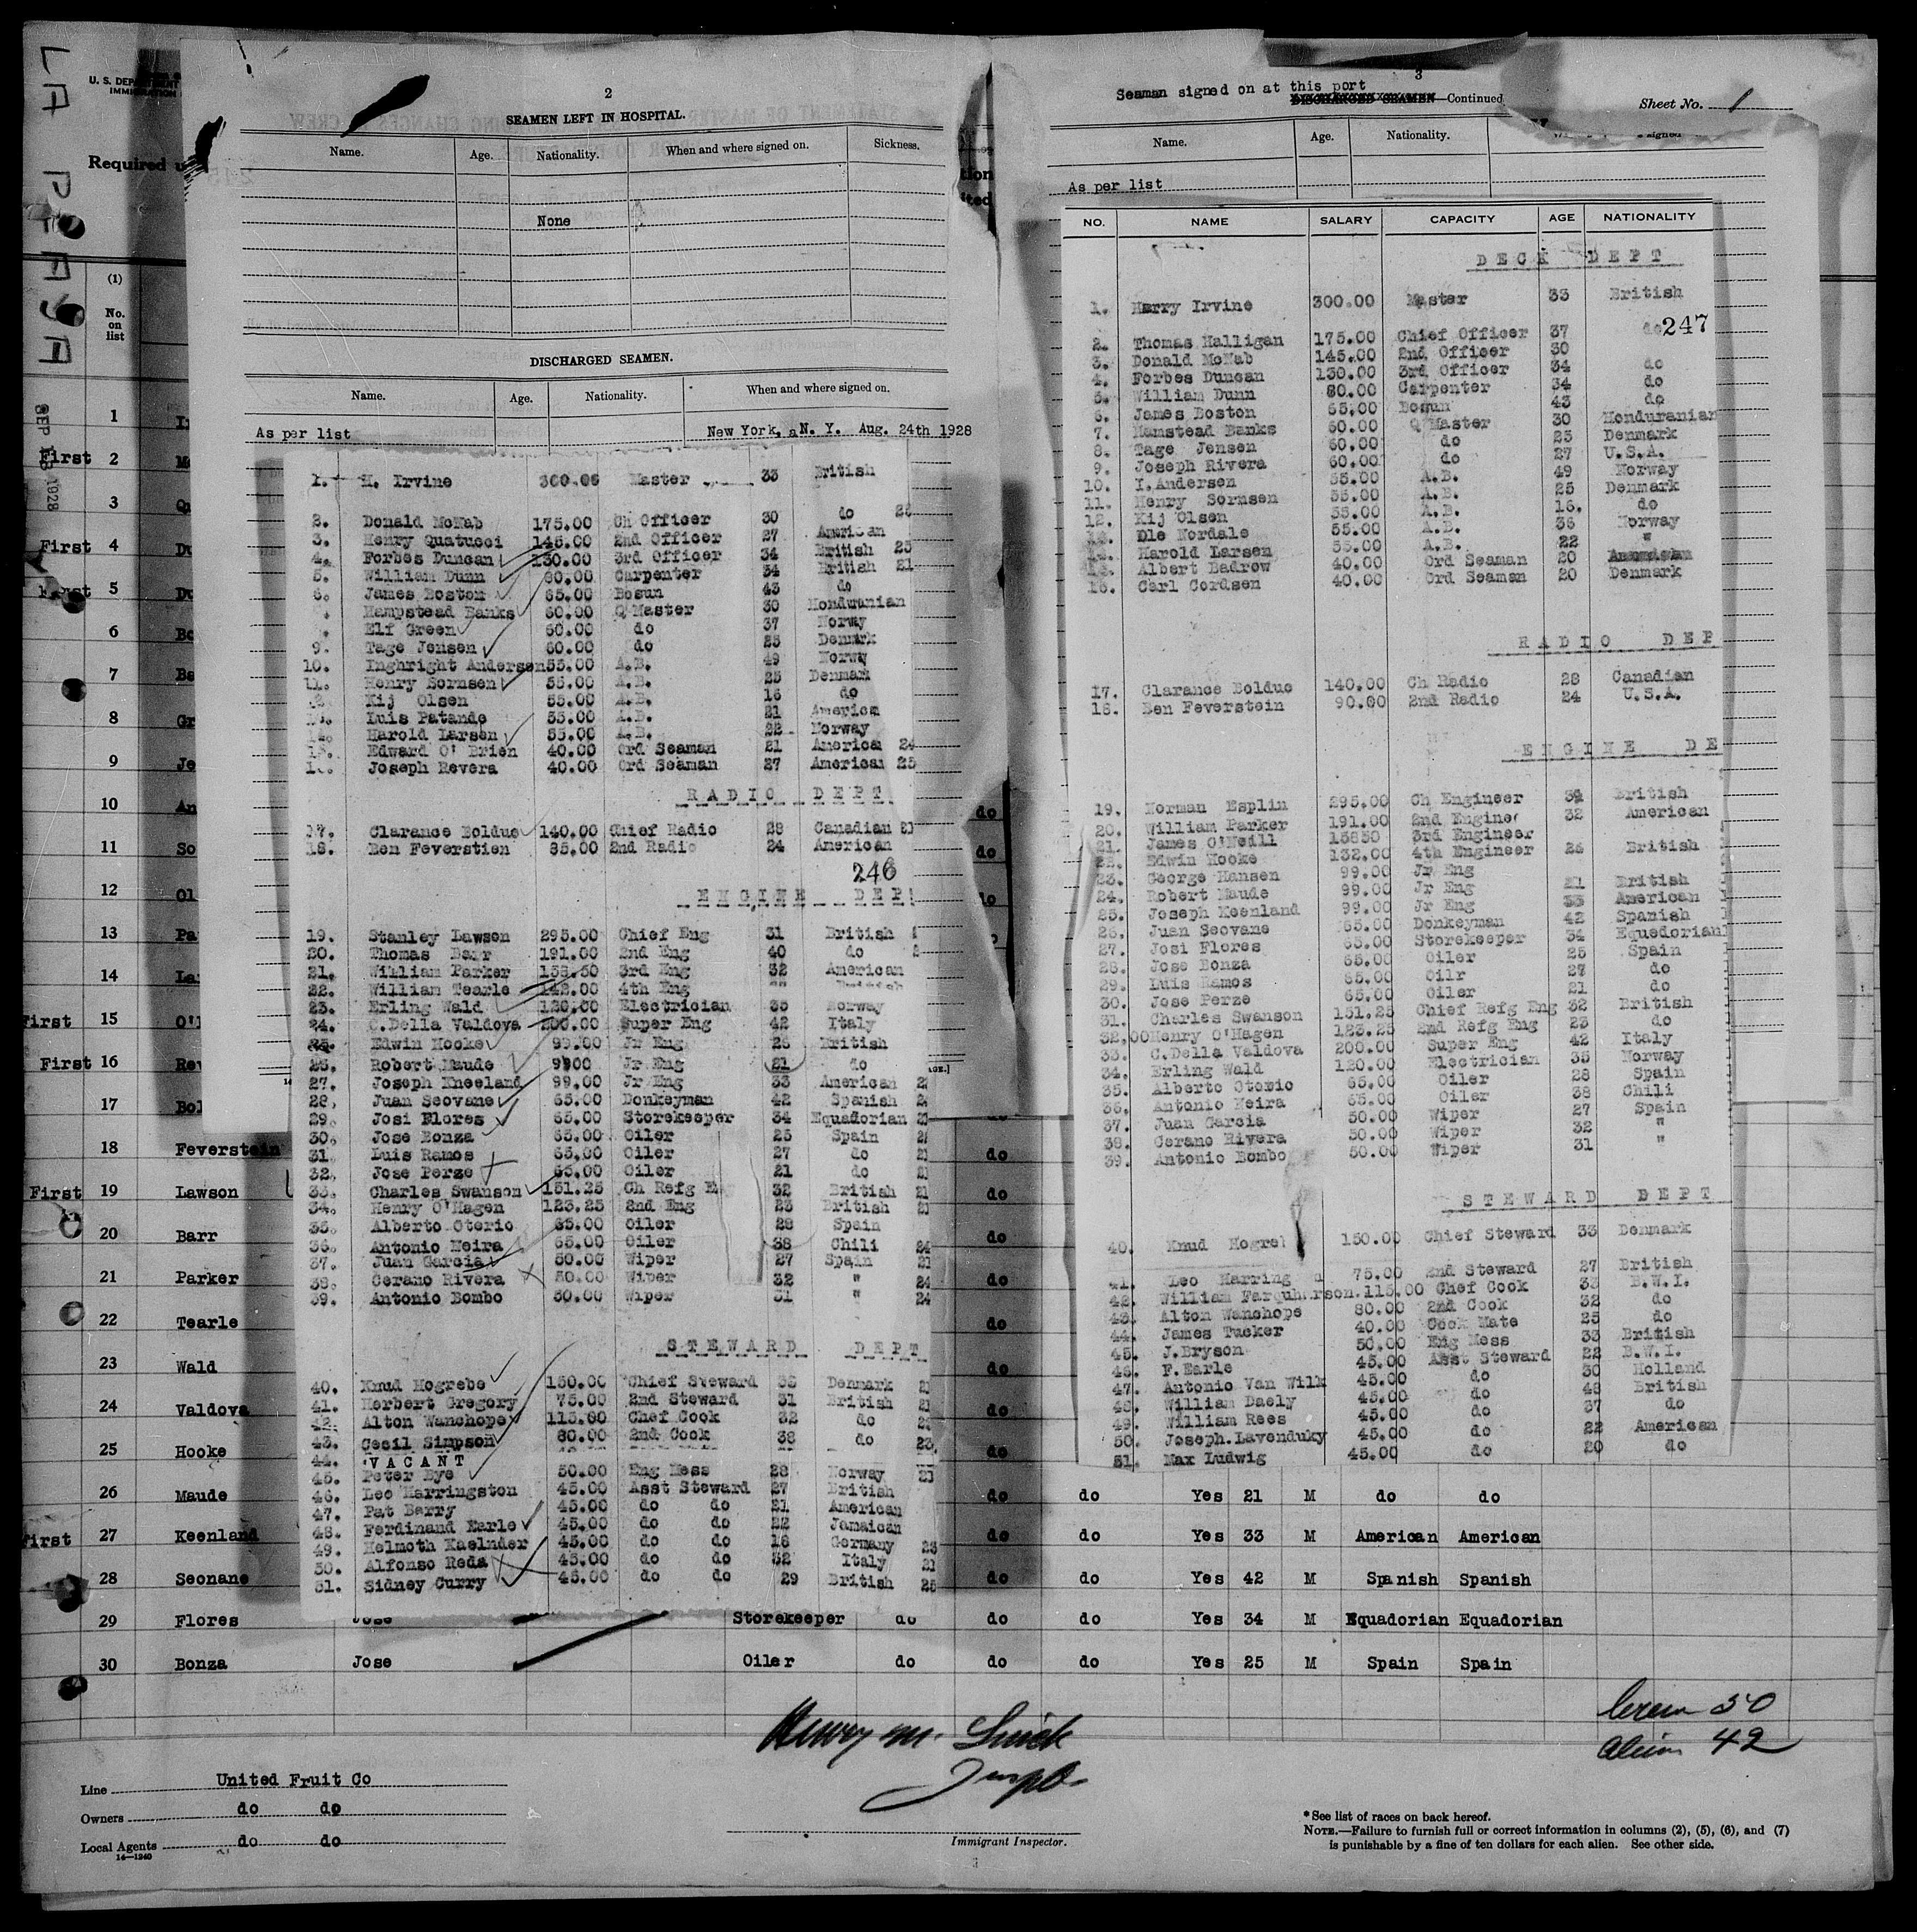 LA PLAYA
SEP 13 1928
U. S. DEPARTMENT
IMMIGRATION
Required u
(1)
No. on list
2
SEAMEN LEFT IN HOSPITAL.
Name. Age. Nationality. When and where signed on. Sickness.
None
DISCHARGED SEAMEN.
Name. Age. Nationality. When and where signed on.
As per list New York, N. Y. Aug. 24th 1928
1. H. Irvine 300.00 Master 33 British
2. Donald McNab 175.00 Ch Officer 30 do
3. Henry Quatucci 145.00 2nd Officer 27 American
4. Forbes Duncan 130.00 3rd Officer 34 British 25
5. William Dunn 80.00 Carpenter 34 British 21
6. James Boston 65.00 Bosun 43 do
Hampstead Banks 60.00 Q'Master 30 Honduranian
Elf Green 60.00 do 37 Norway
9. Tage Jensen 60.00 do 25 Denmark
10. Inghright Andersen 55.00 A.B. 49 Norwy
11. Henry Sornsen 55.00 A.B. 25 Denmark
Kij Olsen 55.00 A.B. 16 do
Luis Patando 55.00 A.B. 21 America
Harold Larsen 55.00 A.B. 22 Norway
Edward O'Brien 40.00 Ord Seaman 21 America 24
Joseph Revera 40.00 Ord Seaman 27 American 25
RADIO DEPT
17. Clarance Bolduc 140.00 Chief Radio 28 Canadian 21
18. Ben Feverstien 85.00 2nd Radio 24 American
246
ENGINE DEP
19. Stanley Lawson 295.00 Chief Eng 31 British
20. Thomas Barr 191.00 2nd Eng 40 do
21. William Parker 158.50 3rd Eng 32 American
22. William Tearle 142.00 4th Eng
23. Erling Wald 120.00 Electrician 35 Norway
24. C.Della Valdova 200.00 Super Eng 42 Italy
25. Edwin Hooke 99.00 Jr Eng 26 British
26. Robert Maude 9900 Jr Eng 21 do
27. Joseph Kneeland 99.00 Jr Eng 33 American
28. Juan Seovane 65.00 Donkeyman 42 Spanish
29. Josi Flores 65.00 Storekeeper 34 Equadorian
30. Jose Bonza 65.00 Oiler 25 Spain
31. Luis Ramos 65.00 Oiler 27 do
32. Jose Perze 65.00 Oiler 21 do
33. Charles Swanson 151.25 Ch Refg E 32 British
34. Henry O'Hagen 123.25 2nd Eng 23 British
35. Alberto Oterio 65.00 Oiler 28 Spain
36. Antonio Meira 65.00 Oiler 38 Chili 24
37. Juan Garcia 50.00 Wiper 27 Spain 21
38. Cerano Rivera 50.00 Wiper 32 " 24
39. Antonio Bombo 50.00 Wiper 31 " 24
STEWARD DEPT
40. Knud Hogrebe 150.00 Chief Steward 33 Denmark
41. Herbert Gregory 75.00 2nd Steward 31 British
42. Alton Wanchope 115.00 Chef Cook 32 do
43. Cecil Simpson 80.00 2nd Cook 38 do
44. VACANT
45. Peter Bye 50.00 Eng Mess 28 Norway
46. Leo Harringston 45.00 Asst Steward 27 British
47. Pat Barry 45.00 do do 21 American
48. Ferdinand Earle 45.00 do do 22 Jamaican
49. Helmoth Kaelnder 45.00 do do 18 Germany
50. Alfonso Reda 45.00 do do 32 Italy
51. Sidney Curry 45.00 do do 29 British
3
Seaman signed on at this port
DISCHARGED SEAMEN—Continued
Sheet No. 1
Name. Age. Nationality. signed
As per list
NO. NAME SALARY CAPACITY AGE NATIONALITY
DECK DEPT
1. Harry Irvine 300.00 Master 33 British
247
2. Thomas Halligan 175.00 Chief Officer 37 do
3. Donald McNab 145.00 2nd Officer 30
4. Forbes Duncan 130.00 3rd Officer 34 do
5. William Dunn 80.00 Carpenter 34 do
6. James Boston 65.00 Bosun 43 do
7. Hamstead Banks 60.00 Q'Master 30 Honduranian
8. Tage Jensen 60.00 do 25 Denmark
9. Joseph Rivera 60.00 do 27 U.S.A.
10. I.Andersen 55.00 A.B. 49 Norway
11. Henry Sornsen 55.00 A.B. 25 Denmark
12. Kij Olsen 55.00 A.B. 16. do
Ole Nordale 55.00 A.B. 36 Norway
Harold Larsen 55.00 A.B. 22 "
Albert Badrow 40.00 Ord Seaman 20 American
16. Carl Cordsen 40.00 Ord Seaman 20 Denmark
RADIO DEP
17. Clarance Bolduc 140.00 Ch Radio 28 Canadian
18. Ben Feverstein 90.00 2nd Radio 24 U.S.A.
ENGINE DE
19. Norman Esplin 295.00 Ch Engineer 34 British
20. William Parker 191.00 2nd Engineer 32 American
21. James O'Neill 15850 3rd Engineer
22. Edwin Hooke 132.00 4th Engineer 26 British
23. George Hansen 99.00 Jr Eng
24. Robert Maude 99.00 Jr Eng 21 British
25. Joseph Keenland 99.00 Jr Eng 33 American
26. Juan Seovane 65.00 Donkeyman 42 Spanish
27. Josi Flores 65.00 Storekeeper 34 Equedorian
28. Jose Bonza 65.00 Oiler 25 Spain
29. Luis Ramos 65.00 Oilr 27 do
30. Jose Perze 65.00 Oiler 21 do
31. Charles Swanson 151.25 Chief Refg Eng 32 British
32,00 Henry O'Hagen 123.25 2nd Refg Eng 23 do
33. C.Della Valdova 200.00 Super Eng 42 Italy
34. Erling Wald 120.00 Electrician 35 Norway
35. Alberto Oterio 65.00 Oiler 28 Spain
36. Antonio Neira 65.00 Oiler 38 Chili
37. Juan Garcia 50.00 Wiper 27 Spain
38. Cerano Rivera 50.00 Wiper 32 "
39. Antonio Bombo 50.00 Wiper 31 "
STEWARD DEPT
40. Knud Hogreb 150.00 Chief Steward 33 Denmark
41. Leo Harring n 75.00 2nd Steward 27 British
42. William Farquharson. 115.00 Chef Cook 33 B.W.I.
43. Alton Wanchope 80.00 2nd Cook 32 do
44. James Tucker 40.00 Cook Mate 25 do
45. J.Bryson 50.00 Eng Mess 33 British
46. F.Earle 45.00 Asst Steward 22 B.W.I.
47. Antonio Van Wilk 45.00 do 30 Holland
48. William Daely 45.00 do 48 British
49. William Rees 45.00 do 37 do
50. Joseph.Lavenduky 45.00 do 22 American
51. Max Ludwig 45.00 do 20 do
1
First 2
3
First 4
First 5
6
7
8
9
10 An do
11 So do
12 Ol do
13 Pa
14 La
First 15 O'
First 16 Rev
17 Bol
18 Feverstein do
First 19 Lawson do
20 Barr do
21 Parker do
22 Tearle do
23 Wald do
24 Valdova do
25 Hooke do
26 Maude do do Yes 21 M do do
First 27 Keenland do do Yes 33 M American American
28 Seonane do do Yes 42 M Spanish Spanish
29 Flores Jose Storekeeper do do do Yes 34 M Equadorian Equadorian
30 Bonza Jose Oiler do do do Yes 25 M Spain Spain
Crew 50
Alien 42
Line United Fruit Co
Owners do do
Local Agents do do
14—1240
Immigrant Inspector.
*See list of races on back hereof.
NOTE.—Failure to furnish full or correct information in columns (2), (5), (6), and (7)
is punishable by a fine of ten dollars for each alien. See other side.